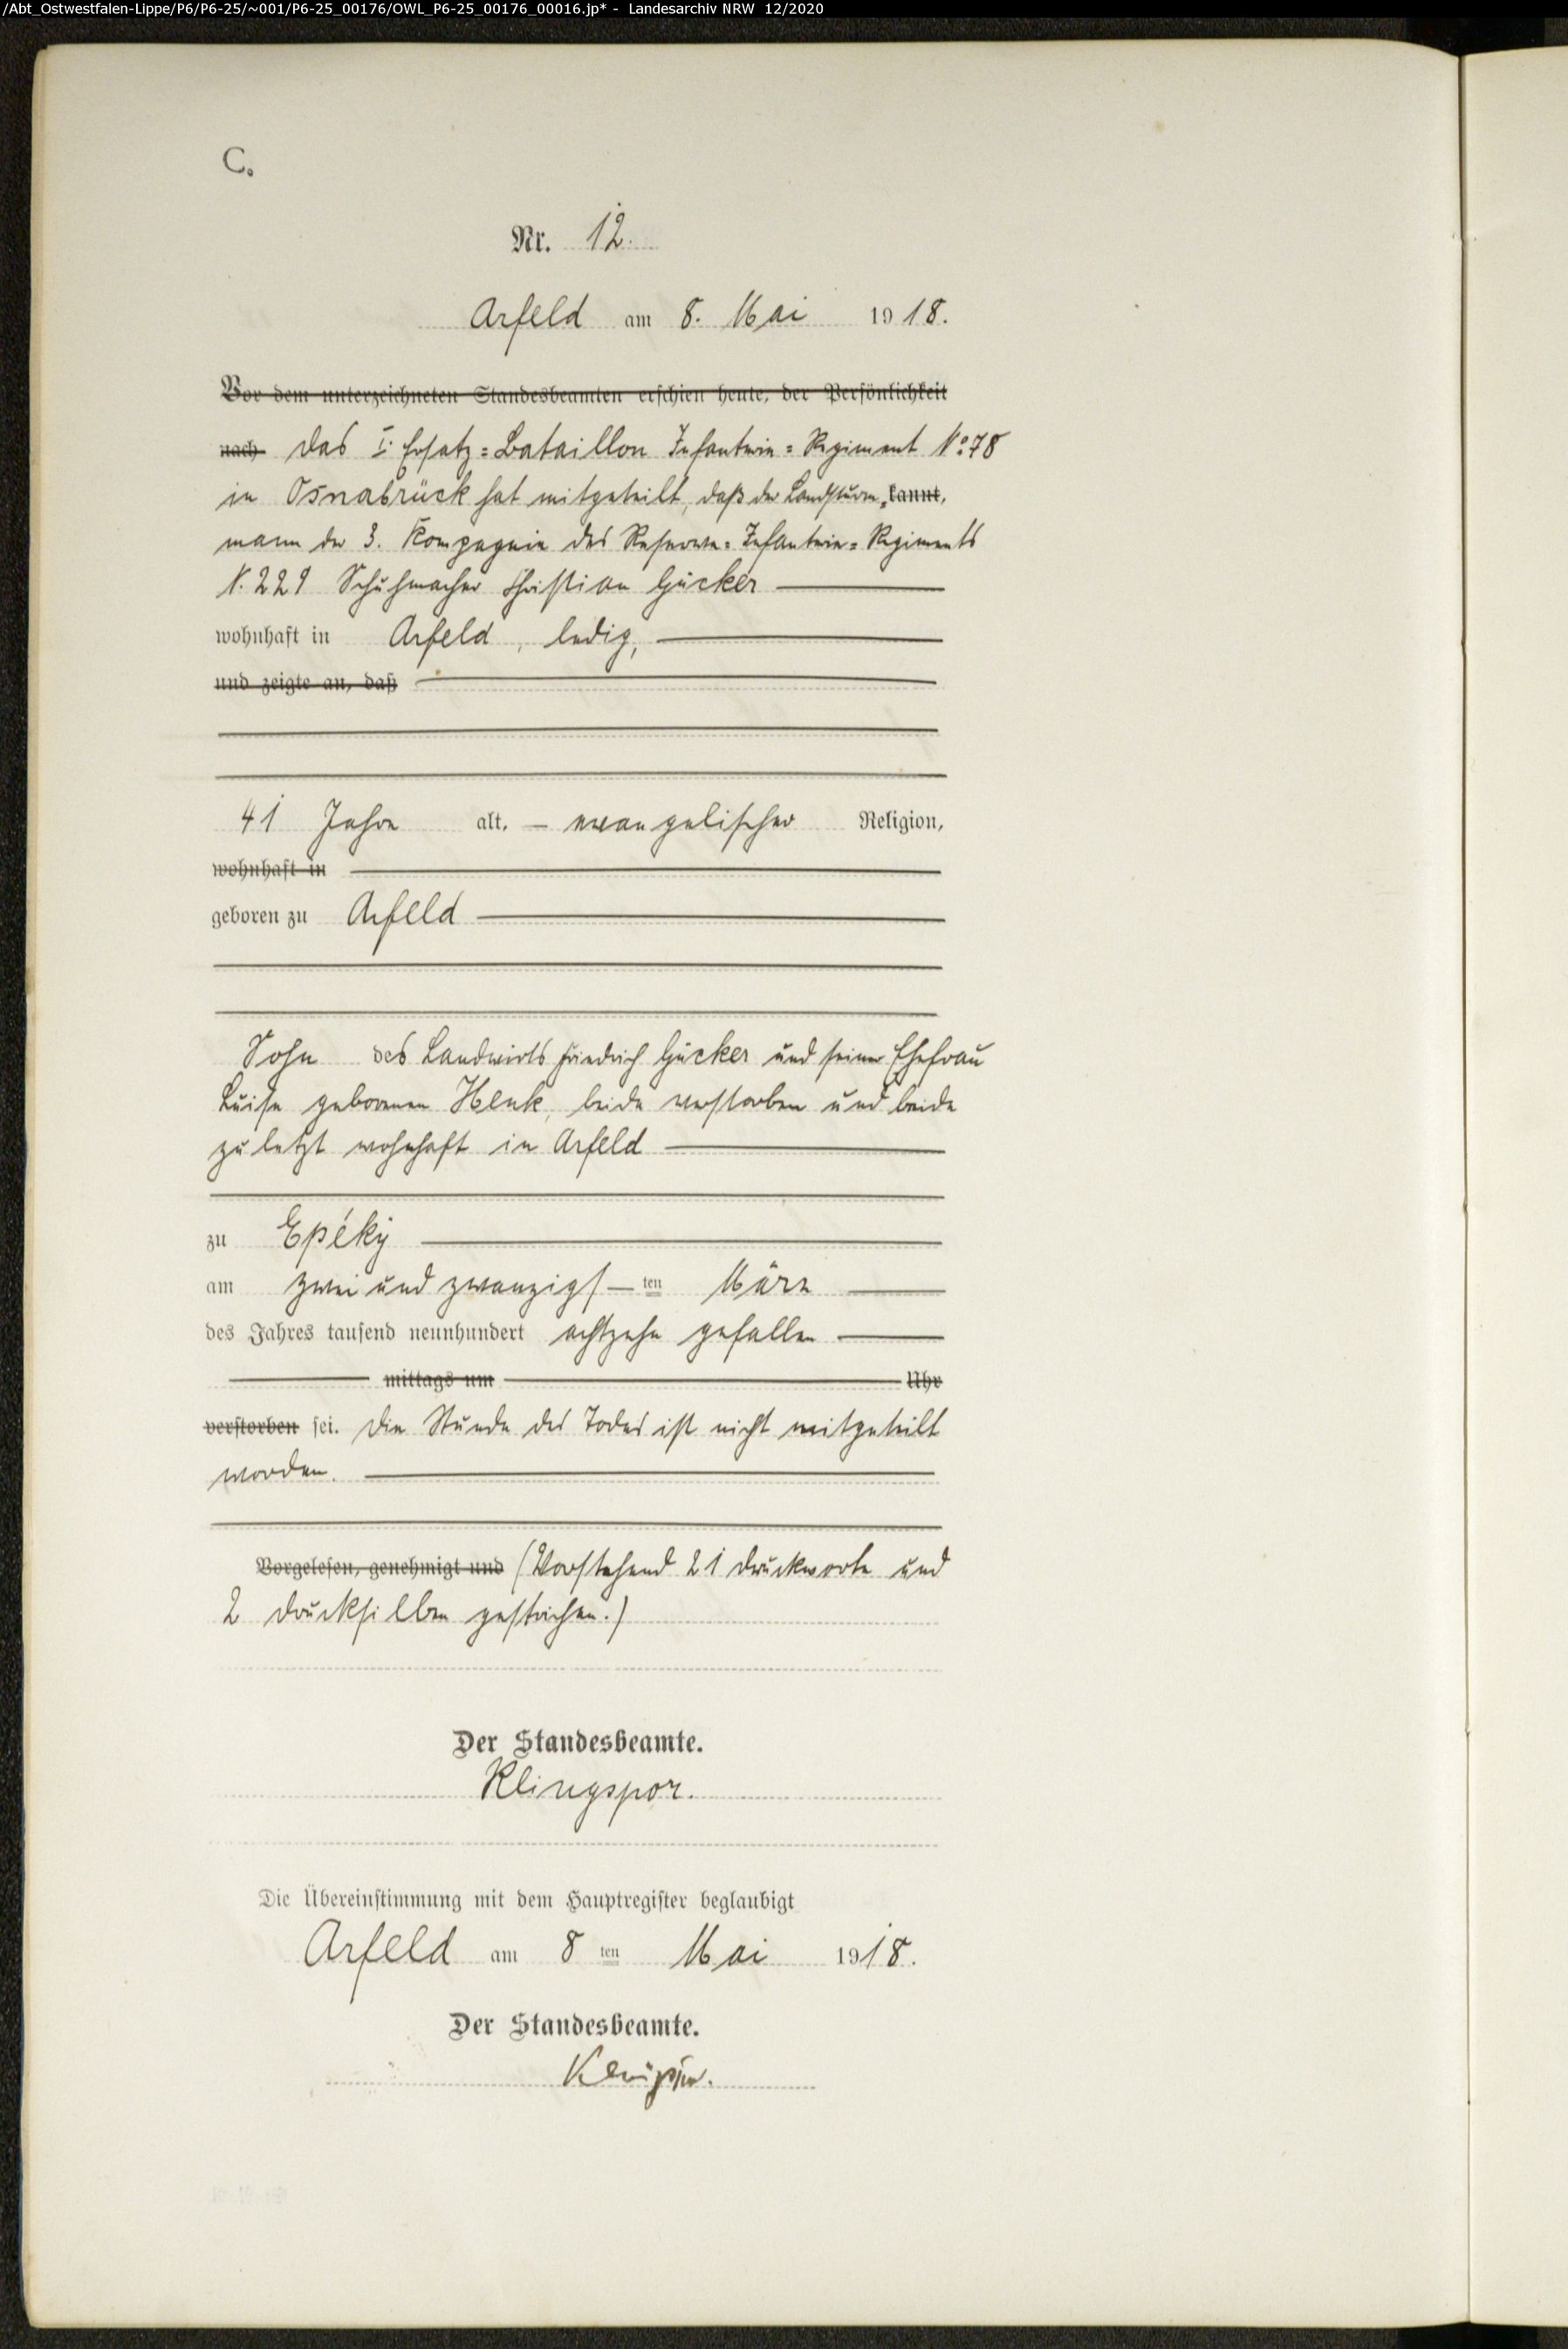 /Abt_Ostwestfalen-Lippe/P6/P6-25/~001/P6-25_00176/OWL_P6-25_00176_00016.jp* - Landesarchiv NRW 12/2020
C.
Nr. 12.
Arfeld am 8. Mai 1918.
Vor dem unterzeichneten Standesbeamten erschien heute, der Persönlichkeit
nach das I. Ersatz=Bataillon Infanterie=Regiment No. 78
in Osnabrück hat mitgeteilt, daß der Landsturm= kannt,
mann der 3. Kompagnie des Reserve=Infanterie=Regiments
N. 229 Schuhmacher Christian Gücker
wohnhaft in Arfeld, ledig,
und zeigte an, daß
41 Jahre alt, evangelischer Religion,
wohnhaft in
geboren zu Arfeld
Sohn des Landwirts Friedrich Gücker und seiner Ehefrau
Luise geborenen Henk, beide verstorben und beide
zuletzt wohnhaft in Arfeld
zu Epéky
am zwei und zwanzigsten März
des Jahres tausend neunhundert achtzehn gefallen
mittags um Uhr
verstorben sei. Die Stunde des Todes ist nicht mitgeteilt
worden.
Vorgelesen, genehmigt und (Vorstehend 21 Druckworte und
2 Drucksilben gestrichen.)
Der Standesbeamte.
Klingspor.
Die Übereinstimmung mit dem Hauptregister beglaubigt
Arfeld am 8 ten Mai 1918.
Der Standesbeamte.